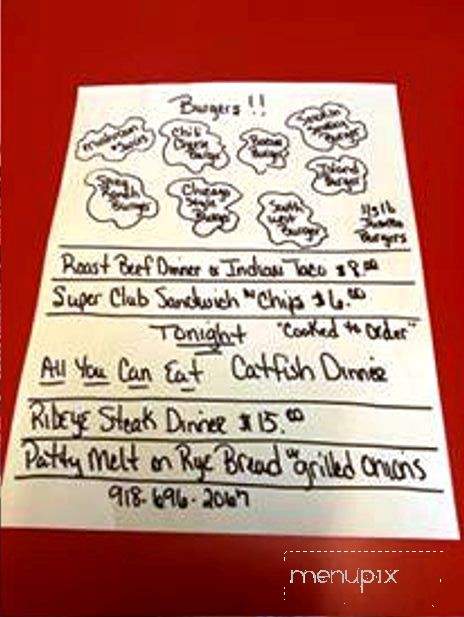 Burgers!!
Mushroom
+ Swiss
Chili
Cheese
Burger
Bacon
Burger
Smokin
Burger
Island
Burger
Spicy
Ranch
Burger
Chicago
Style
Burger
South
West
Burger
1/3 lb
Burgers
Roast Beef Dinner or Indian Taco $8.00
Super Club Sandwich w Chips $6.00
Tonight "Cooked to Order"
All You Can Eat Catfish Dinner
Ribeye Steak Dinner $15.00
Patty Melt on Rye Bread w grilled onions
918-696-2067
menupix